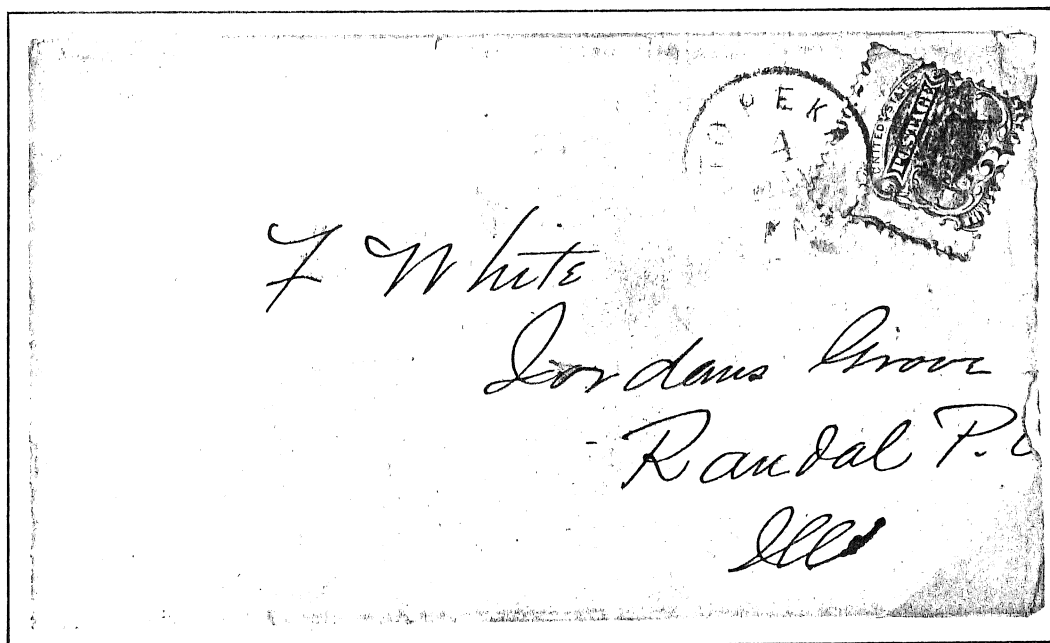 TOPEKA
A
UNITED STATES
POSTAGE
F White
Jordans Grove
Randal P.O
Ills